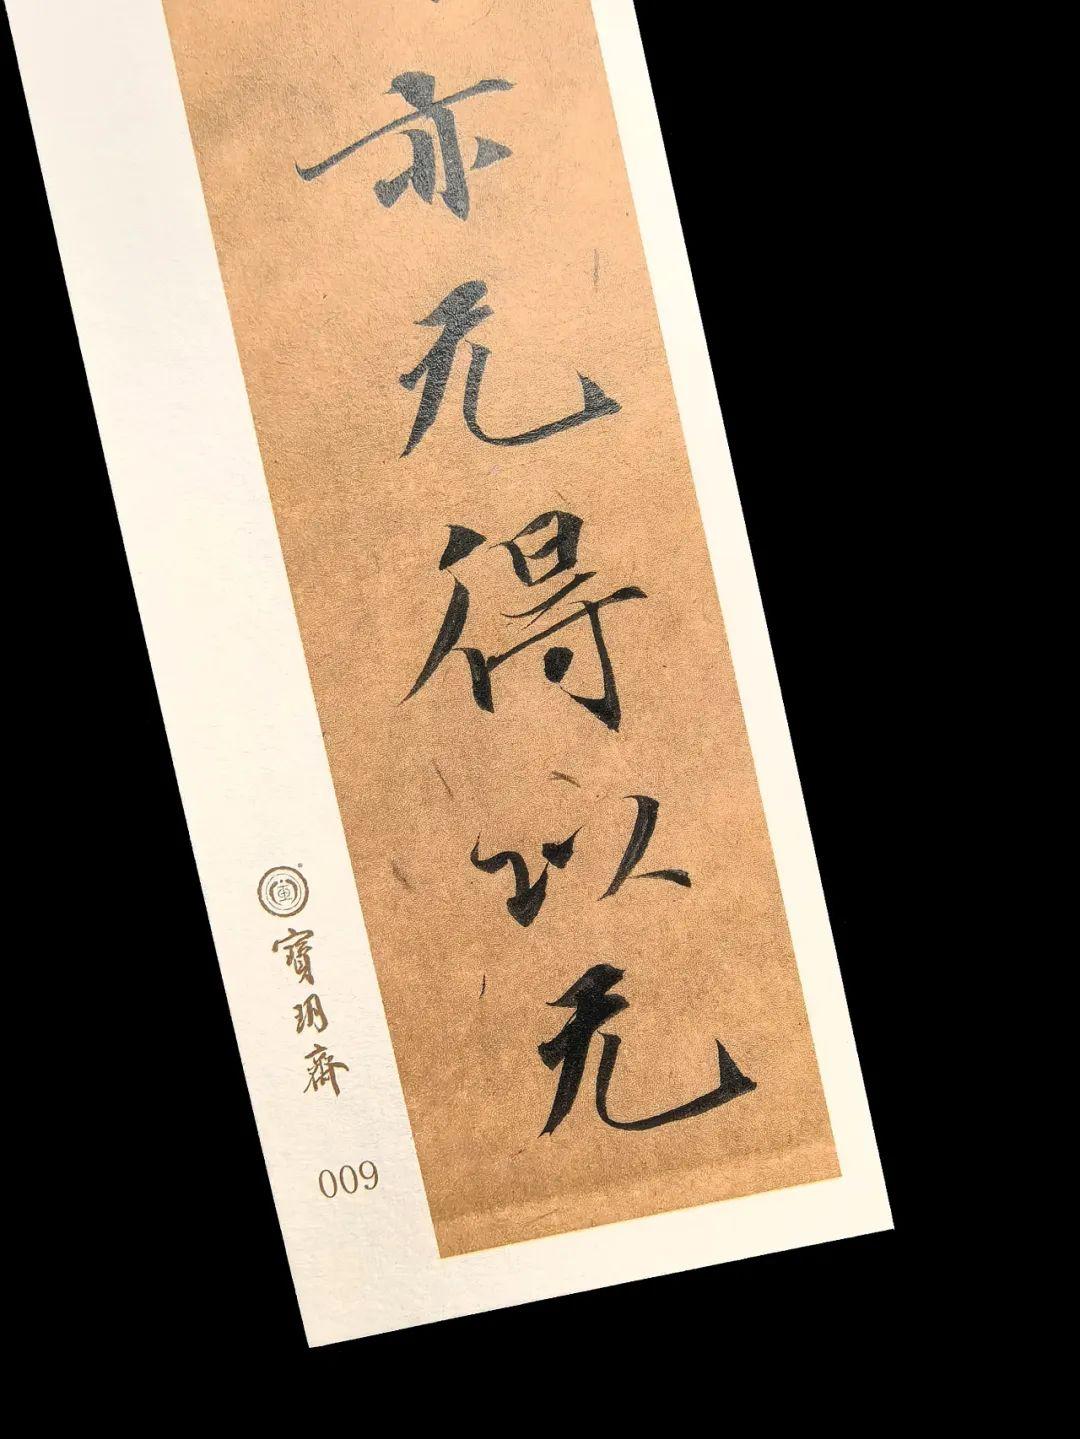 亦无得以无
寶玥齋
009